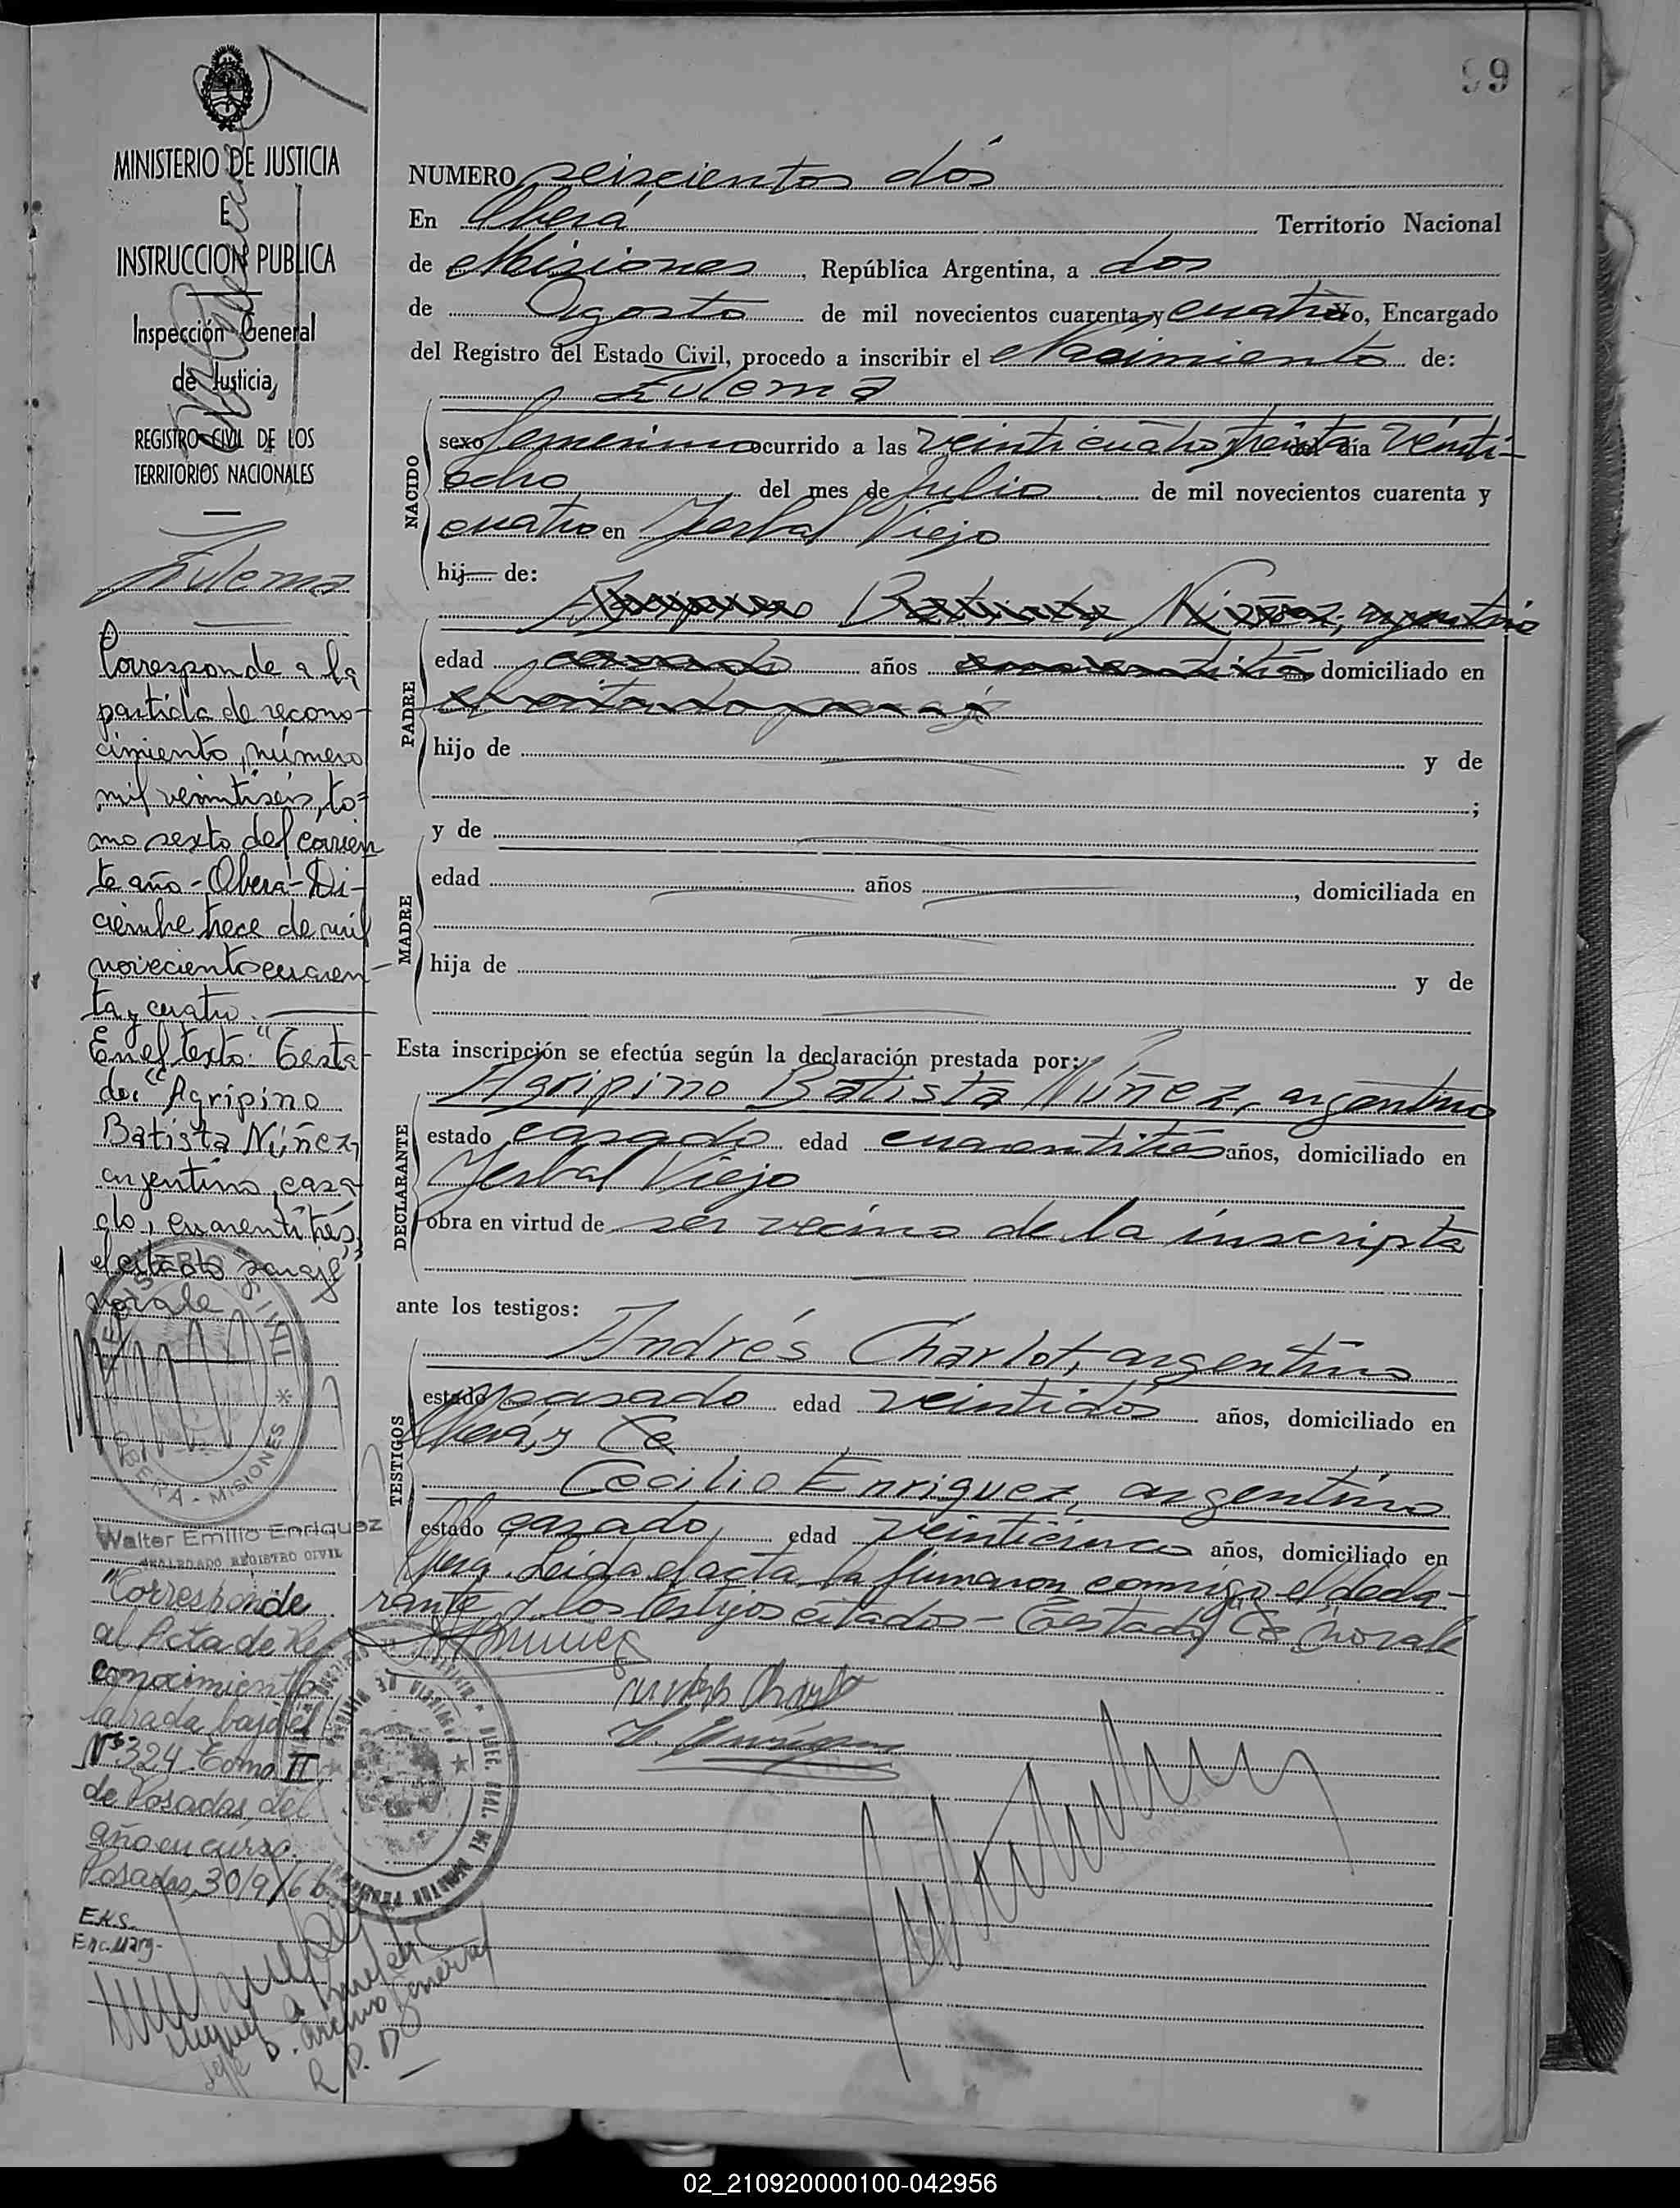 99
MINISTERIO DE JUSTICIA
E
INSTRUCCION PUBLICA
Inspección General
de Justicia
REGISTRO CIVIL DE LOS
TERRITORIOS NACIONALES
Zulema
Corresponde a la
partida de recono-
cimiento, número
mil veintiseis, to-
mo sexto del corrien
te año - Oberá - Di-
ciembre trece de mil
novecientos cuaren-
ta y cuatro.
En el texto: "Testa-
do: "Agripino
Batista Núñez,
argentino, casa-
do, cuarentitrés,
el citado paraje"
no vale
REGISTRO CIVIL
OBERA - MISIONES
Walter Emilio Enriquez
ENCARGADO REGISTRO CIVIL
"Corresponde
al Acta de Re-
conocimiento
labrada bajo el
Nº 324 Tomo II
de Posadas del
año en curso.
Posadas, 30/9/66
E.H.S.
Enc. Marg-
Archivo General
NUMERO seiscientos dós
En Oberá Territorio Nacional
de Misiones, República Argentina, a dos
de Agosto de mil novecientos cuarenta y cuatro Yo, Encargado
del Registro del Estado Civil, procedo a inscribir el Nacimiento de:
Zulema
NACIDO
sexo femenino ocurrido a las veinticuatro y treinta del dia veinti-
ocho del mes de Julio de mil novecientos cuarenta y
cuatro en Yerbal Viejo
hij de:
PADRE
Agripino Batista Núñez, argentino
edad casado años cuarentitrés domiciliado en
el citado paraje
hijo de y de
;
MADRE
y de
edad años , domiciliada en
hija de y de
Esta inscripción se efectúa según la declaración prestada por:
DECLARANTE
Agripino Batista Núñez, argentino
estado casado edad cuarentitrés años, domiciliado en
Yerbal Viejo
obra en virtud de ser vecino de la inscripta
ante los testigos:
TESTIGOS
Andrés Charlot, argentino
estado casado edad veintidós años, domiciliado en
Oberá, y Ce
Cecilio Enriquez, argentino
estado casado, edad veinticinco años, domiciliado en
Oberá. Leida el acta la firmaron conmigo el decla-
rante y los testigos citados - Testado "Ce" no vale
02_210920000100-042956